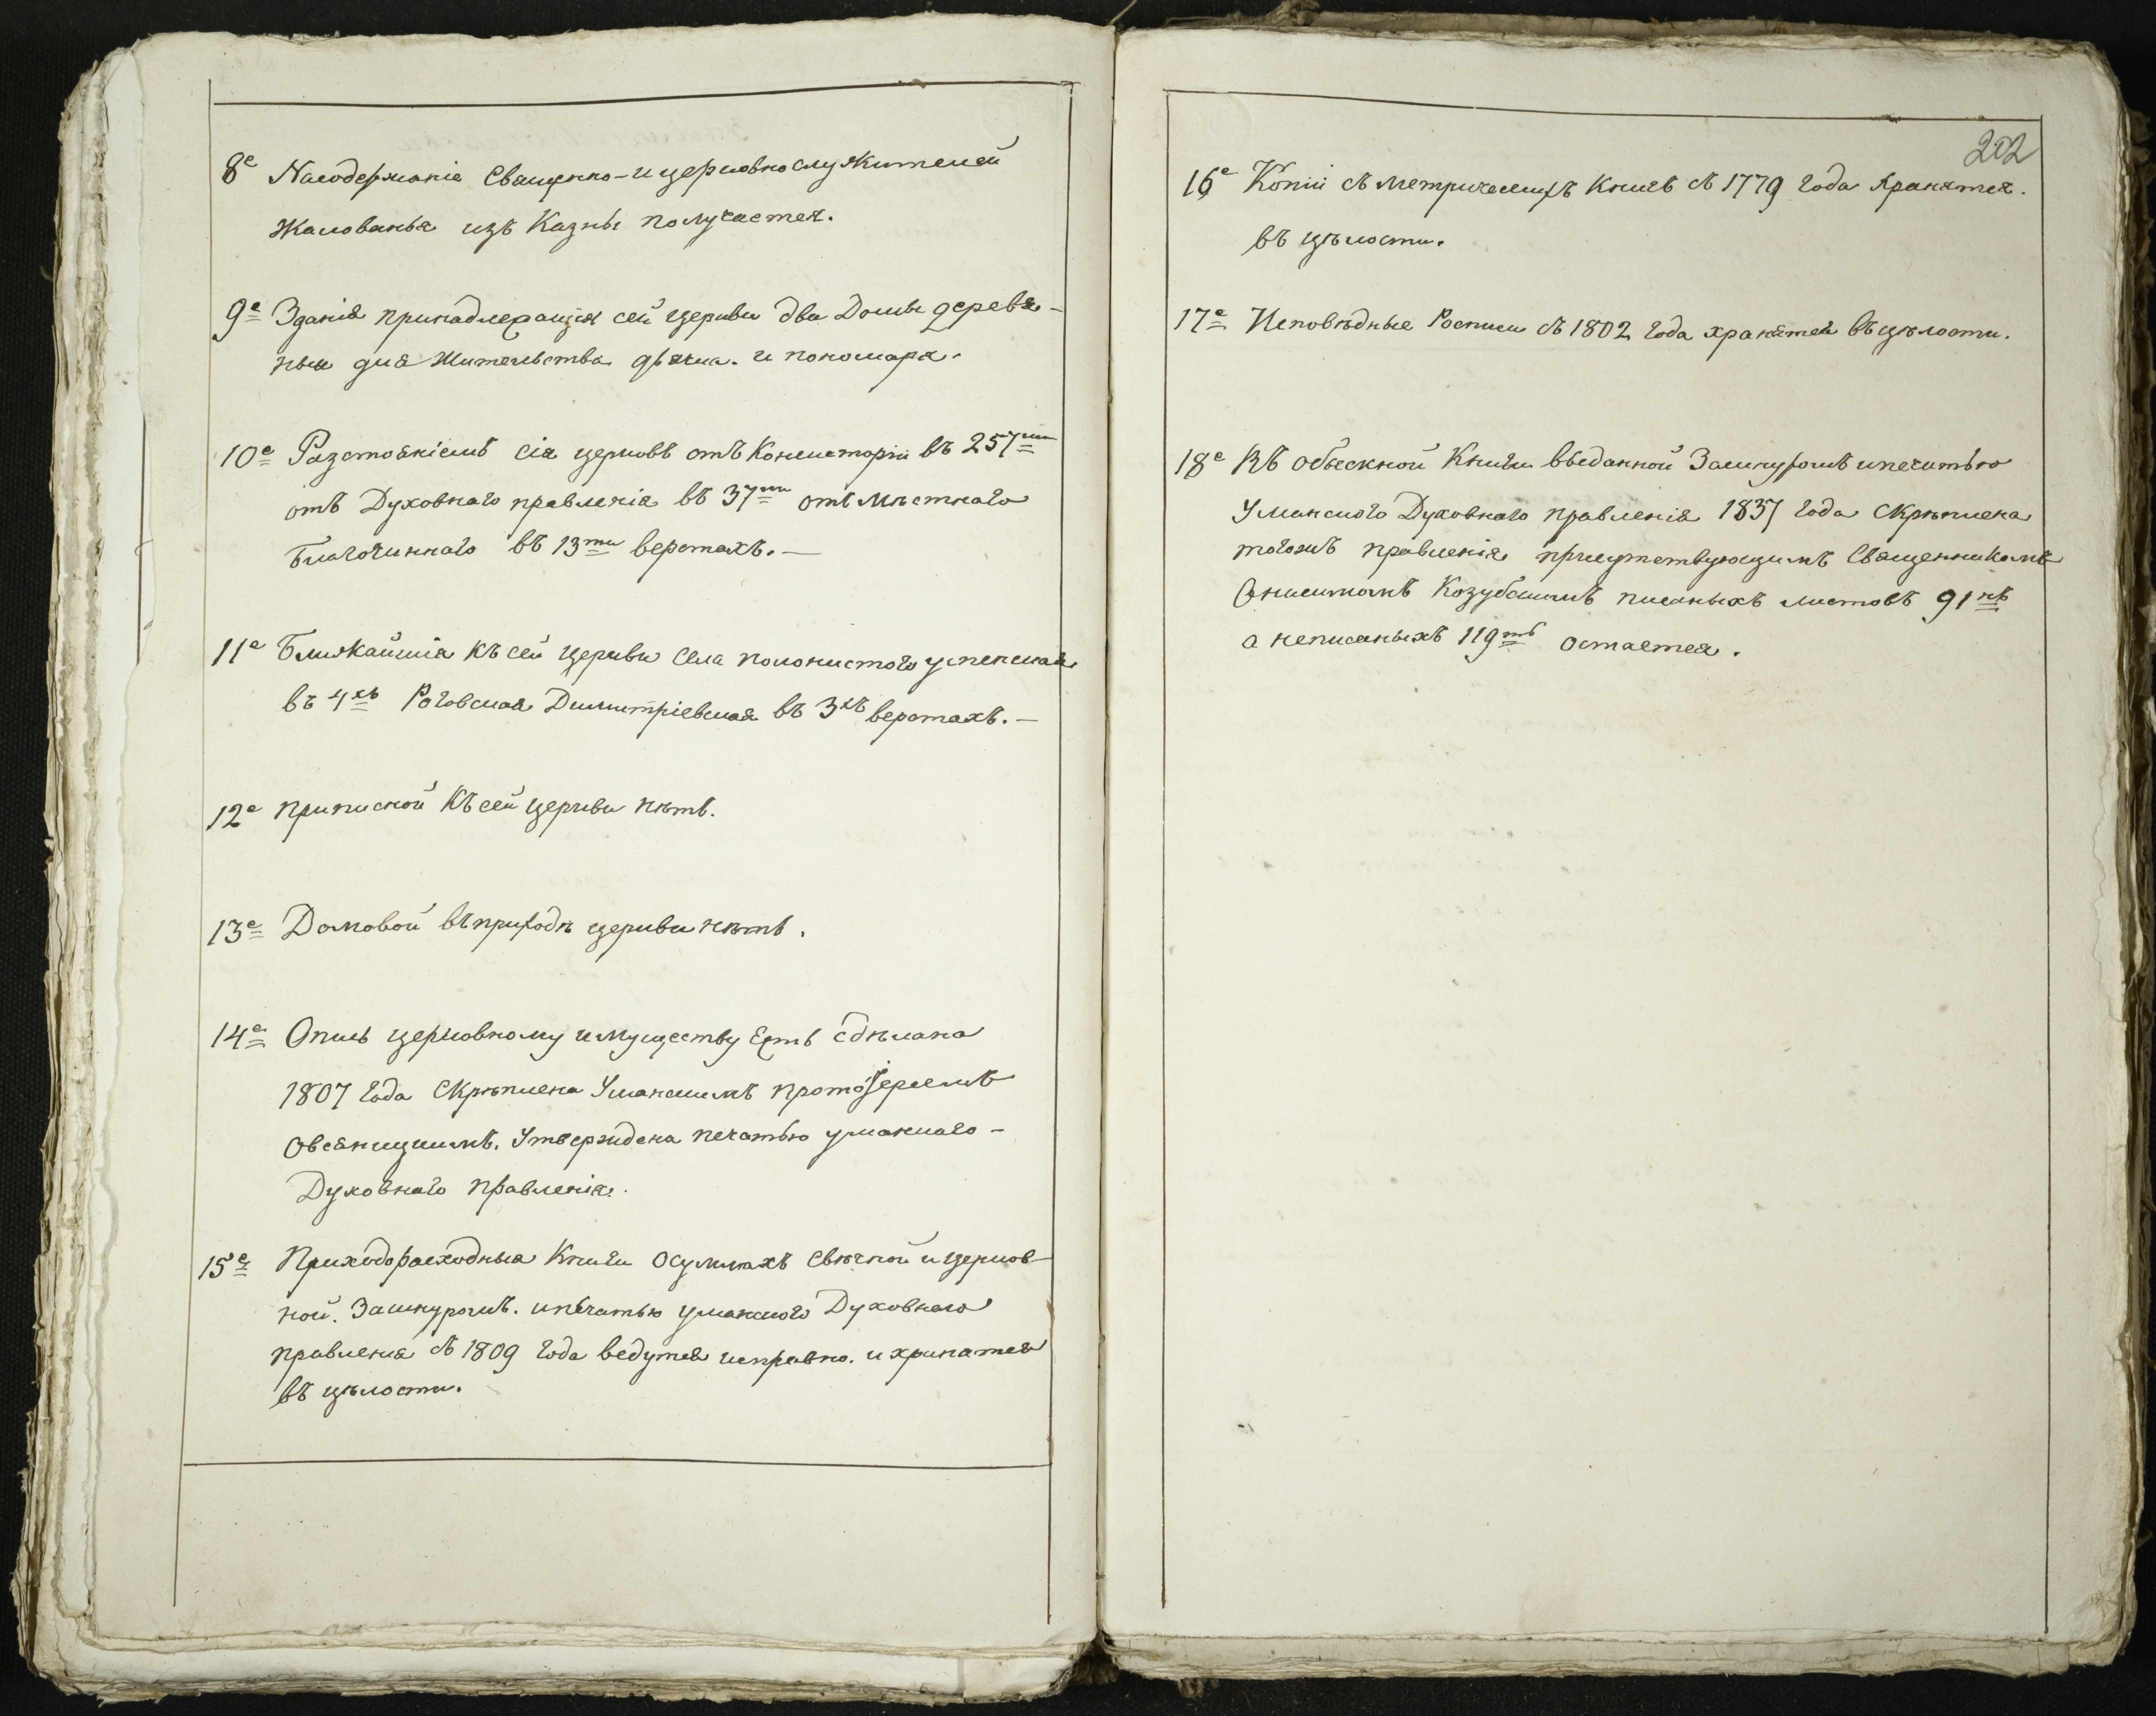 8е Насодержаніе Священно-ицерковнослужителей
Жалованья изъ Казны получается.
9е Зданія принадлежащія сей Церкви два Домы деревя-
ныи для Жительства дьячка. и пономаря.
10е Разстояніемъ сія церковь отъ Консисторіи въ 257ми
отъ Духовнаго правленія въ 37ми отъ Мѣстнаго
Благочиннаго въ 13ти верстахъ.—
11е Ближайшія къ сей Церкви Села полонистого успенская
въ 4хъ Роговская Димитріевская въ 3хъ верстахъ.—
12е Приписной Къ сей Церкви нѣтъ.
13е Домовой въ приходѣ церкви нѣтъ.
14е Опись церковному имуществу Есть сдѣлана
1807 года Скрѣплена Уманскимъ протоіереемъ
Овсяницкимъ. Утверждена печатью уманскаго-
Духовнаго Правленія.
15е Приходорасходныя Книги Осуммахъ Свѣчной и Церков-
ной. Зашнуромъ. ипечатью уманского Духовнаго
правленія съ 1809 года ведутся исправно. и хранятся
въ цѣлости.
202
16е Копіи съ метрическихъ Книгъ съ 1779 года хранятся.
въ цѣлости.
17е Исповѣдные Росписи съ 1802 года хранятся въ цѣлости.
18е Въ обыскной Книги выданной Зашнуромъ ипечатью
Уманского Духовнаго правленія 1837 года Скрѣплена
тогожъ правленія присутствующимъ Священникомъ
Онисимомъ Козубскимъ писаныхъ листовъ 91нъ
а неписаныхъ 119ть остается.